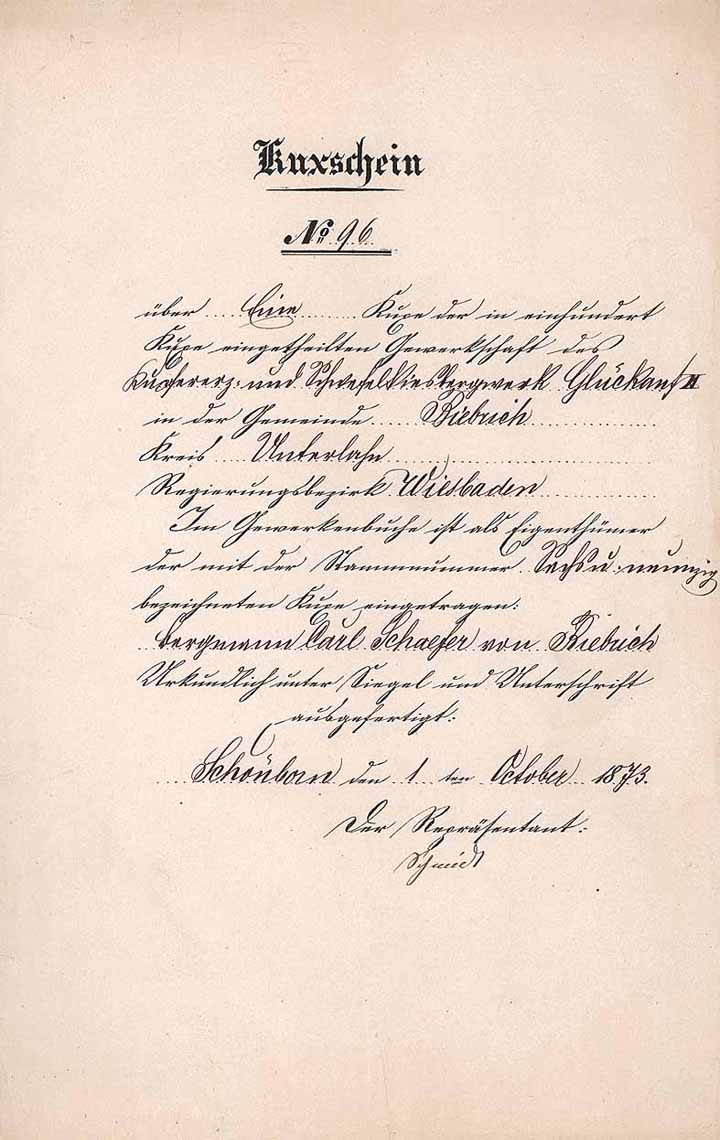 Kuxschein
No. 96
über Eine Kuxe der in einhundert
Kuxe eingetheilten Gewerkschaft des
Kupfererz- und Schwefelkiesbergwerk Glückauf II
in der Gemeinde Biebrich
Kreis Unterlahn
Regierungsbezirk Wiesbaden
Im Gewerkenbuche ist als Eigenthümer
der mit der Stammnummer Sechsu. neunzig
bezeichneten Kuxe eingetragen:
Bergmann Carl Schaefer von Biebrich
Urkundlich unter Siegel und Unterschrift
ausgefertigt:
Schönborn den 1 ten October 1873.
Der Repräsentant:
Schmidt